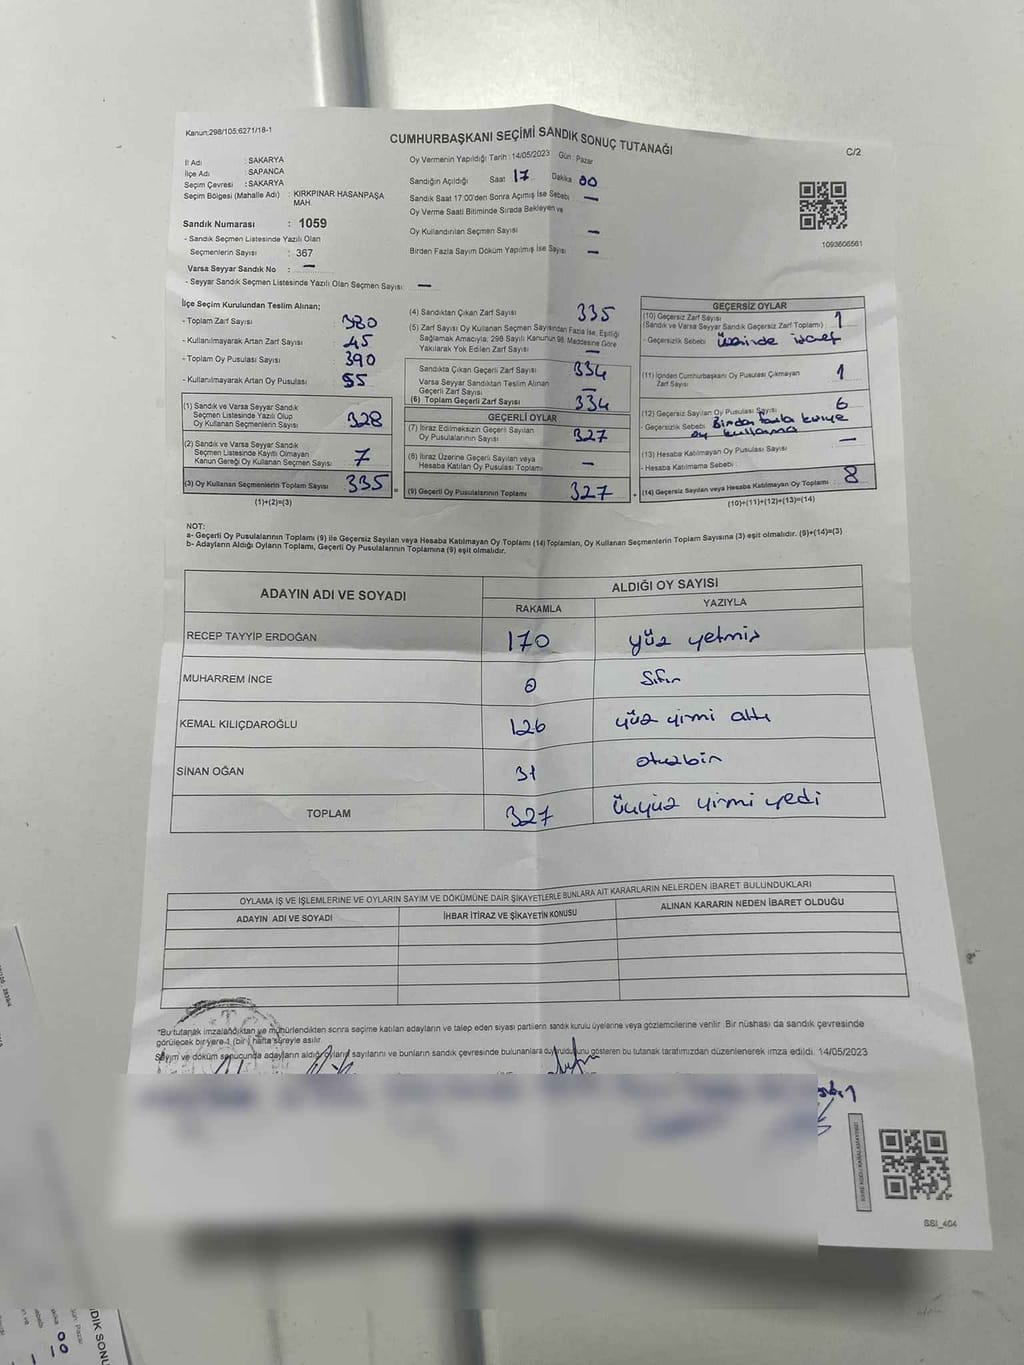 Kanun;298/105;6271/18-1
CUMHURBAŞKANI SEÇİMİ SANDIK SONUÇ TUTANAĞI
C/2
İl Adı : SAKARYA
İlçe Adı : SAPANCA
Seçim Çevresi : SAKARYA
Seçim Bölgesi (Mahalle Adı) : KIRKPINAR HASANPAŞA
MAH.
Sandık Numarası : 1059
- Sandık Seçmen Listesinde Yazılı Olan
Seçmenlerin Sayısı : 367
Varsa Seyyar Sandık No : —
- Seyyar Sandık Seçmen Listesinde Yazılı Olan Seçmen Sayısı : —
Oy Vermenin Yapıldığı Tarih : 14/05/2023 Gün : Pazar
Sandığın Açıldığı Saat 17 Dakika 00
Sandık Saat 17:00'den Sonra Açımış İse Sebebi —
Oy Verme Saati Bitiminde Sırada Bekleyen ve
Oy Kullandırılan Seçmen Sayısı —
Birden Fazla Sayım Döküm Yapılmış İse Sayısı —
1093606561
İlçe Seçim Kurulundan Teslim Alınan;
- Toplam Zarf Sayısı : 380
- Kullanılmayarak Artan Zarf Sayısı : 45
- Toplam Oy Pusulası Sayısı : 390
- Kullanılmayarak Artan Oy Pusulası : 55
(1) Sandık ve Varsa Seyyar Sandık
Seçmen Listesinde Yazılı Olup
Oy Kullanan Seçmenlerin Sayısı : 328
(2) Sandık ve Varsa Seyyar Sandık
Seçmen Listesinde Kayıtlı Olmayan
Kanun Gereği Oy Kullanan Seçmen Sayısı : 7
(3) Oy Kullanan Seçmenlerin Toplam Sayısı : 335
(1)+(2)=(3)
(4) Sandıktan Çıkan Zarf Sayısı : 335
(5) Zarf Sayısı Oy Kullanan Seçmen Sayısından Fazla İse, Eşitliği
Sağlamak Amacıyla; 298 Sayılı Kanunun 98. Maddesine Göre
Yakılarak Yok Edilen Zarf Sayısı : —
Sandıkta Çıkan Geçerli Zarf Sayısı : 334
Varsa Seyyar Sandıktan Teslim Alınan
Geçerli Zarf Sayısı : —
(6) Toplam Geçerli Zarf Sayısı : 334
GEÇERLİ OYLAR
(7) İtiraz Edilmeksizin Geçerli Sayılan
Oy Pusulalarının Sayısı : 327
(8) İtiraz Üzerine Geçerli Sayılan veya
Hesaba Katılan Oy Pusulası Toplamı : —
(9) Geçerli Oy Pusulalarının Toplamı : 327
GEÇERSİZ OYLAR
(10) Geçersiz Zarf Sayısı
(Sandık ve Varsa Seyyar Sandık Geçersiz Zarf Toplamı) : 1
- Geçersizlik Sebebi : üzerinde işaret
(11) İçinden Cumhurbaşkanı Oy Pusulası Çıkmayan
Zarf Sayısı : 1
(12) Geçersiz Sayılan Oy Pusulası Sayısı : 6
- Geçersizlik Sebebi : Birden fazla kişiye
oy kullanma
(13) Hesaba Katılmayan Oy Pusulası Sayısı : —
- Hesaba Katılmama Sebebi :
(14) Geçersiz Sayılan veya Hesaba Katılmayan Oy Toplamı : 8
(10)+(11)+(12)+(13)=(14)
NOT:
a- Geçerli Oy Pusulalarının Toplamı (9) ile Geçersiz Sayılan veya Hesaba Katılmayan Oy Toplamı (14) Toplamları, Oy Kullanan Seçmenlerin Toplam Sayısına (3) eşit olmalıdır. (9)+(14)=(3)
b- Adayların Aldığı Oyların Toplamı, Geçerli Oy Pusulalarının Toplamına (9) eşit olmalıdır.
ADAYIN ADI VE SOYADI
ALDIĞI OY SAYISI
RAKAMLA YAZIYLA
RECEP TAYYİP ERDOĞAN 170 yüz yetmiş
MUHARREM İNCE 0 Sıfır
KEMAL KILIÇDAROĞLU 126 yüz yirmi altı
SİNAN OĞAN 31 otuzbir
TOPLAM 327 üçyüz yirmi yedi
OYLAMA İŞ VE İŞLEMLERİNE VE OYLARIN SAYIM VE DÖKÜMÜNE DAİR ŞİKAYETLERLE BUNLARA AİT KARARLARIN NELERDEN İBARET BULUNDUKLARI
ADAYIN ADI VE SOYADI İHBAR İTİRAZ VE ŞİKAYETİN KONUSU ALINAN KARARIN NEDEN İBARET OLDUĞU
*Bu tutanak imzalandıktan ve mühürlendikten sonra seçime katılan adayların ve talep eden siyasi partilerin sandık kurulu üyelerine veya gözlemcilerine verilir. Bir nüshası da sandık çevresinde
görülecek bir yere 1 (bir) hafta süreyle asılır.
Sayım ve döküm sonucunda adayların aldığı oyların sayılarını ve bunların sandık çevresinde bulunanlara duyurulduğunu gösteren bu tutanak tarafımızdan düzenlenerek imza edildi. 14/05/2023
SSI_404